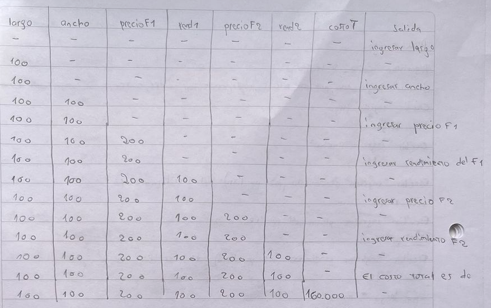 largo ancho precioF1 rend1 precioF2 rend2 costoT Salida
- - - - - - - ingresar largo
100 - - - - - - -
100 - - - - - - ingresar ancho
100 100 - - - - - -
100 100 - - - - - ingresar precio F1
100 100 200 - - - - -
100 100 200 - - - - ingresar rendimiento del F1
100 100 200 100 - - - -
100 100 200 100 - - - ingresar precio F2
100 100 200 100 200 - - -
100 100 200 100 200 - - ingresar rendimiento F2
100 100 200 100 200 100 - -
100 100 200 100 200 100 - El costo total es de
100 100 200 100 200 100 160.000 -